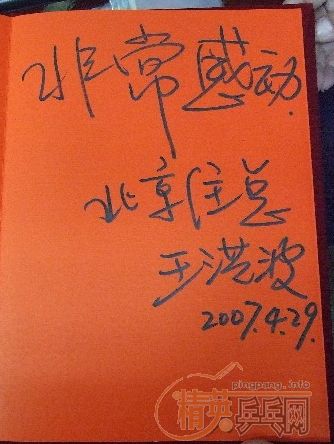 非常感动.
北京住总
王洪波
2007.4.29.
pingpang.info
精英乒乓网